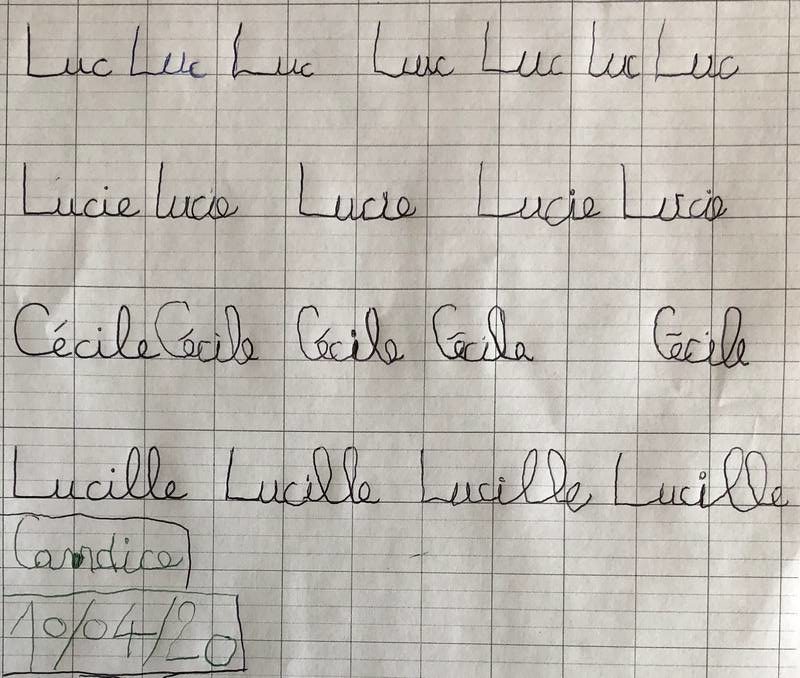 Luc Luc Luc Luc Luc Luc Luc
Lucie Lucie Lucie Lucie Lucie
Cécile Cécile Cécile Cécile Cécile
Lucille Lucille Lucille Lucille
Candice
10/04/20